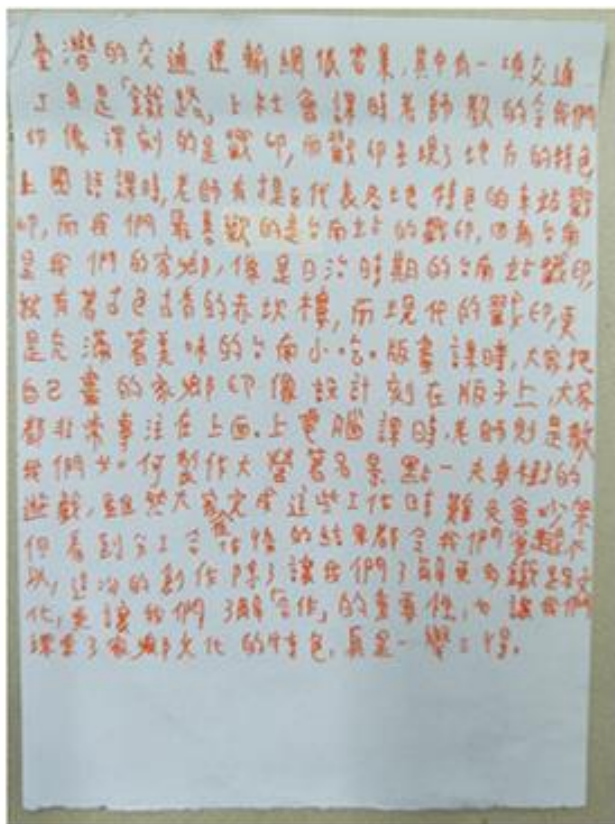 臺灣的交通運輸網很密集，其中有一項交通
工具是「鐵路」，上社會課時老師教的令我們
印像深刻的是戳印，而戳印呈現了地方的特色
上國語課時，老師有提到代表各地特色的車站戳
印，而我們最喜歡的是台南站的戳印，因為台南
是我們的家鄉，像是日治時期的台南站戳印，
就有著古色古香的赤坎樓，而現代的戳印，更
是充滿著美味的台南小吃。版畫課時，大家把
自己畫的家鄉印像設計刻在版子上，大家
都非常專注在上面。上電腦課時，老師則是教
我們如何製作大營著名景點－夫妻樹的
遊戲，雖然大家完成這些工作時難免會吵架
但看到分工合作後的結果都令我們
以，這次的創作除了讓我們了解更多鐵路文
化，更讓我們了解「合作」的重要性，也讓我們
課本了家鄉文化的特色，真是一舉二得。